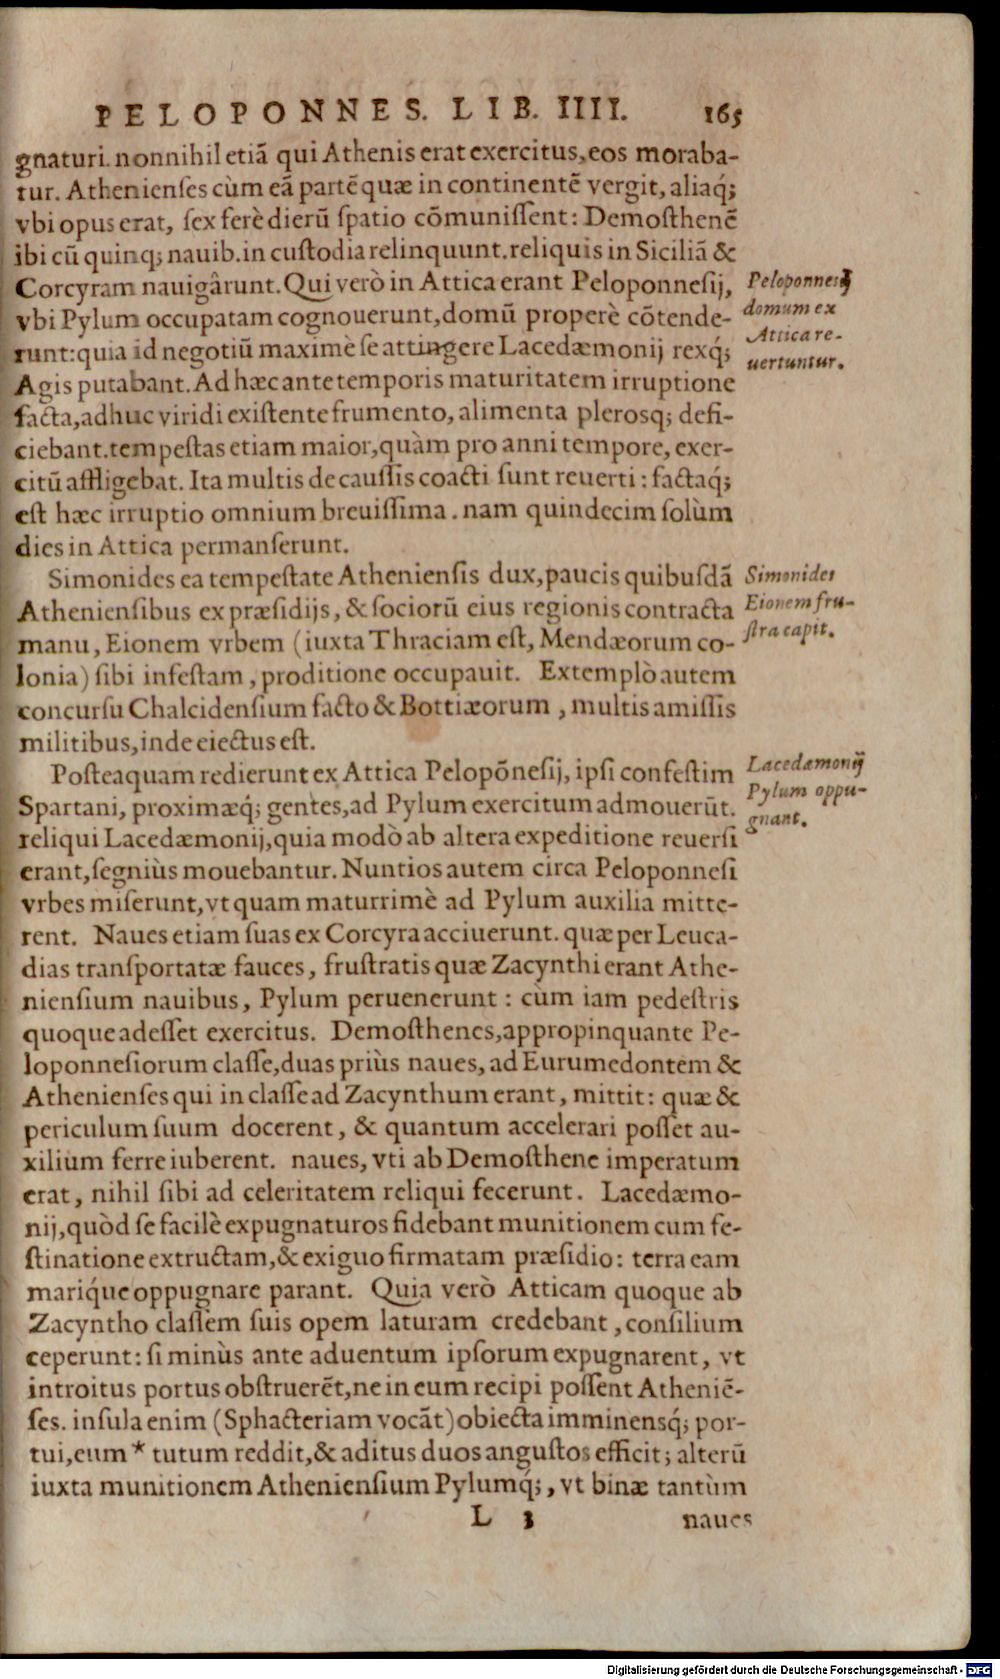 PELOPONNES. LIB. IIII. 165
gnaturi. nonnihil etiã qui Athenis erat exercitus, eos moraba-
tur. Athenienses cùm eã partẽ quæ in continentẽ vergit, aliaq́;
vbi opus erat, sex ferè dierũ spatio cõmunissent: Demosthenẽ
ibi cũ quinq; nauib. in custodia relinquunt. reliquis in Siciliã &
Corcyram nauigârunt. Qui verò in Attica erant Peloponnesij,
vbi Pylum occupatam cognouerunt, domũ properè cõtende-
runt: quia id negotiũ maximè se attingere Lacedæmonij rexq́;
Agis putabant. Ad hæc ante temporis maturitatem irruptione
facta, adhuc viridi existente frumento, alimenta plerosq; defi-
ciebant. tempestas etiam maior, quàm pro anni tempore, exer-
citũ affligebat. Ita multis de caussis coacti sunt reuerti: factaq́;
est hæc irruptio omnium breuissima. nam quindecim solùm
dies in Attica permanserunt.
Peloponnesij
domum ex
Attica re-
uertuntur.
Simonides ea tempestate Atheniensis dux, paucis quibusdã
Atheniensibus ex præsidijs, & sociorũ eius regionis contracta
manu, Eionem vrbem (iuxta Thraciam est, Mendæorum co-
lonia) sibi infestam, proditione occupauit. Extemplò autem
concursu Chalcidensium facto & Bottiæorum, multis amissis
militibus, inde eiectus est.
Simonides
Eionem fru-
stra capit.
Posteaquam redierunt ex Attica Pelopõnesij, ipsi confestim
Spartani, proximæq́; gentes, ad Pylum exercitum admouerũt.
reliqui Lacedæmonij, quia modò ab altera expeditione reuersi
erant, segniùs mouebantur. Nuntios autem circa Peloponnesi
vrbes miserunt, vt quam maturrimè ad Pylum auxilia mitte-
rent. Naues etiam suas ex Corcyra acciuerunt. quæ per Leuca-
dias transportatæ fauces, frustratis quæ Zacynthi erant Athe-
niensium nauibus, Pylum peruenerunt: cùm iam pedestris
quoque adesset exercitus. Demosthenes, appropinquante Pe-
loponnesiorum classe, duas priùs naues, ad Eurumedontem &
Athenienses qui in classe ad Zacynthum erant, mittit: quæ &
periculum suum docerent, & quantum accelerari posset au-
xilium ferre iuberent. naues, vti ab Demosthene imperatum
erat, nihil sibi ad celeritatem reliqui fecerunt. Lacedæmo-
nij, quòd se facilè expugnaturos fidebant munitionem cum fe-
stinatione extructam, & exiguo firmatam præsidio: terra eam
mariq́ue oppugnare parant. Quia verò Atticam quoque ab
Zacyntho classem suis opem laturam credebant, consilium
ceperunt: si minùs ante aduentum ipsorum expugnarent, vt
introitus portus obstruerẽt, ne in eum recipi possent Atheniẽ-
ses. insula enim (Sphacteriam vocãt) obiecta imminensq́; por-
tui, eum * tutum reddit, & aditus duos angustos efficit; alterũ
iuxta munitionem Atheniensium Pylumq́;, vt binæ tantùm
Lacedæmonij
Pylum oppu-
gnant.
L 3 naues
Digitalisierung gefördert durch die Deutsche Forschungsgemeinschaft - DFG